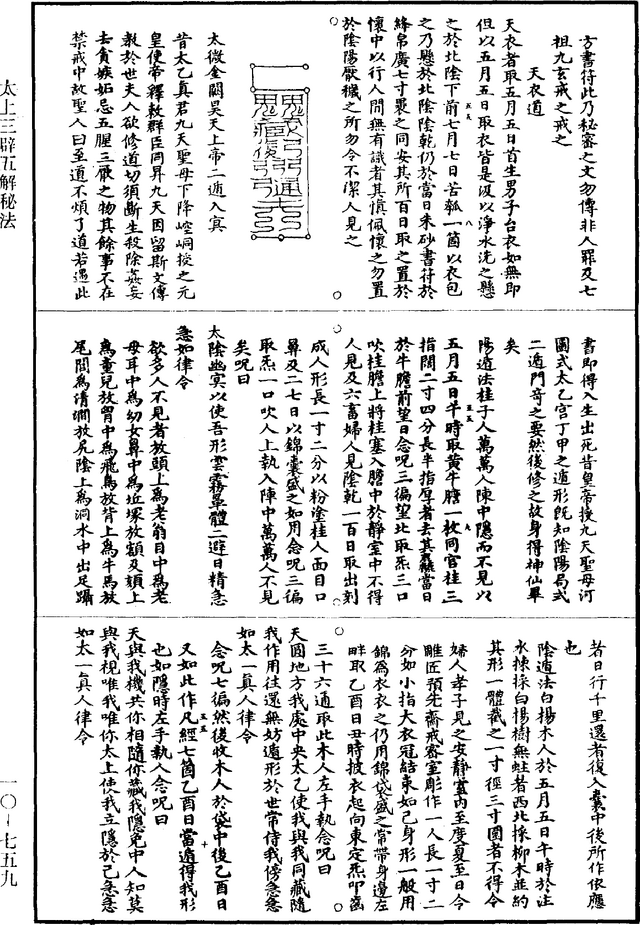 方書符此乃秘密之文勿傳非人罪及七
祖九玄戒之戒之
天衣道
天衣者取五月五日首生男子台衣如無即
但以五月五日取衣皆是汲以淨水洗之懸
之於北陰下前七月七日苦瓠一箇以衣包
之乃懸於北陰陰乾仍於當日朱砂書符於
絳帛廣七寸裹之同安其所百日取之置於
懷中以行人間無有識者其慎佩懷之勿置
於陰陽厭穢之所勿令不潔人見之
太微金闕昊天上帝二遁入冥
昔太乙真君九天聖母下降崆峒授之元
皇使帝釋敕群臣同昇九天因留斯文傳
教於世夫人欲修道切須斷生殺除姦妄
去貪嫉妬忌五腥三厭之物其餘事不在
禁戒中故聖人曰至道不煩了道若遇此
書即得入生出死昔皇帝授九天聖母河
圖式太乙宮丁甲之遁形既知陰陽局式
二遁門奇之要然後修之故身得神仙畢
矣
陽遁法桂子人萬萬人陳中隱而不見以
五月五日午時取黃牛膽一枚同官桂三
指闊二寸四分長半指厚者去其麤當日
於牛膽前望日念呪三徧望北取炁三口
吹桂膽上將桂塞入膽中於靜室中不得
人見及六畜婦人見陰乾一百日取出刻
成人形長一寸二分以粉塗桂人面目口
鼻及二七日以錦囊盛之如用念呪三徧
取炁一口吹人上執入陣中萬萬人不見
矣呪曰
太陰幽冥以使吾形雲霧罩體二避日精急
急如律令
欲多人不見者放頭上為老翁目中為老
母耳中為幼女鼻中為坵塚放額及頦上
為童兒放胃中為飛鳥放背上為牛馬放
尾閭為清澗放尻陰上為洞水中出足躡
若日行千里還者復入囊中後所作依應
也
陰遁法白楊木人於五月五日午時於注
水揀採白楊樹無蛀者西北採柳木並約
其形一體截之一寸徑三寸圍者不得令
婦人孝子見之安靜室內至度夏至日令
雕匠預先齋戒密室彫作一人長一寸二
分如小指大衣冠結束如己身形一般用
錦為衣衣之仍用錦袋盛之常帶身邊左
畔取乙酉日丑時披衣起向東定炁叩齒
三十六通取此木人左手執念呪曰
天圓地方我處中央太乙使我與我同藏隨
我作用往還無妨遁形於世常侍我傍急急
如太一真人律令
念呪七徧然後收木人於袋中後乙酉日
又如此作凡經七箇乙酉日當遁得我形
也如隱時左手執人念呪曰
天與我機共你相隨你藏我隱免中人知莫
與我視唯我唯你太上使我立隱於己急急
如太一真人律令
太上三辟五解秘法
一〇－七五九